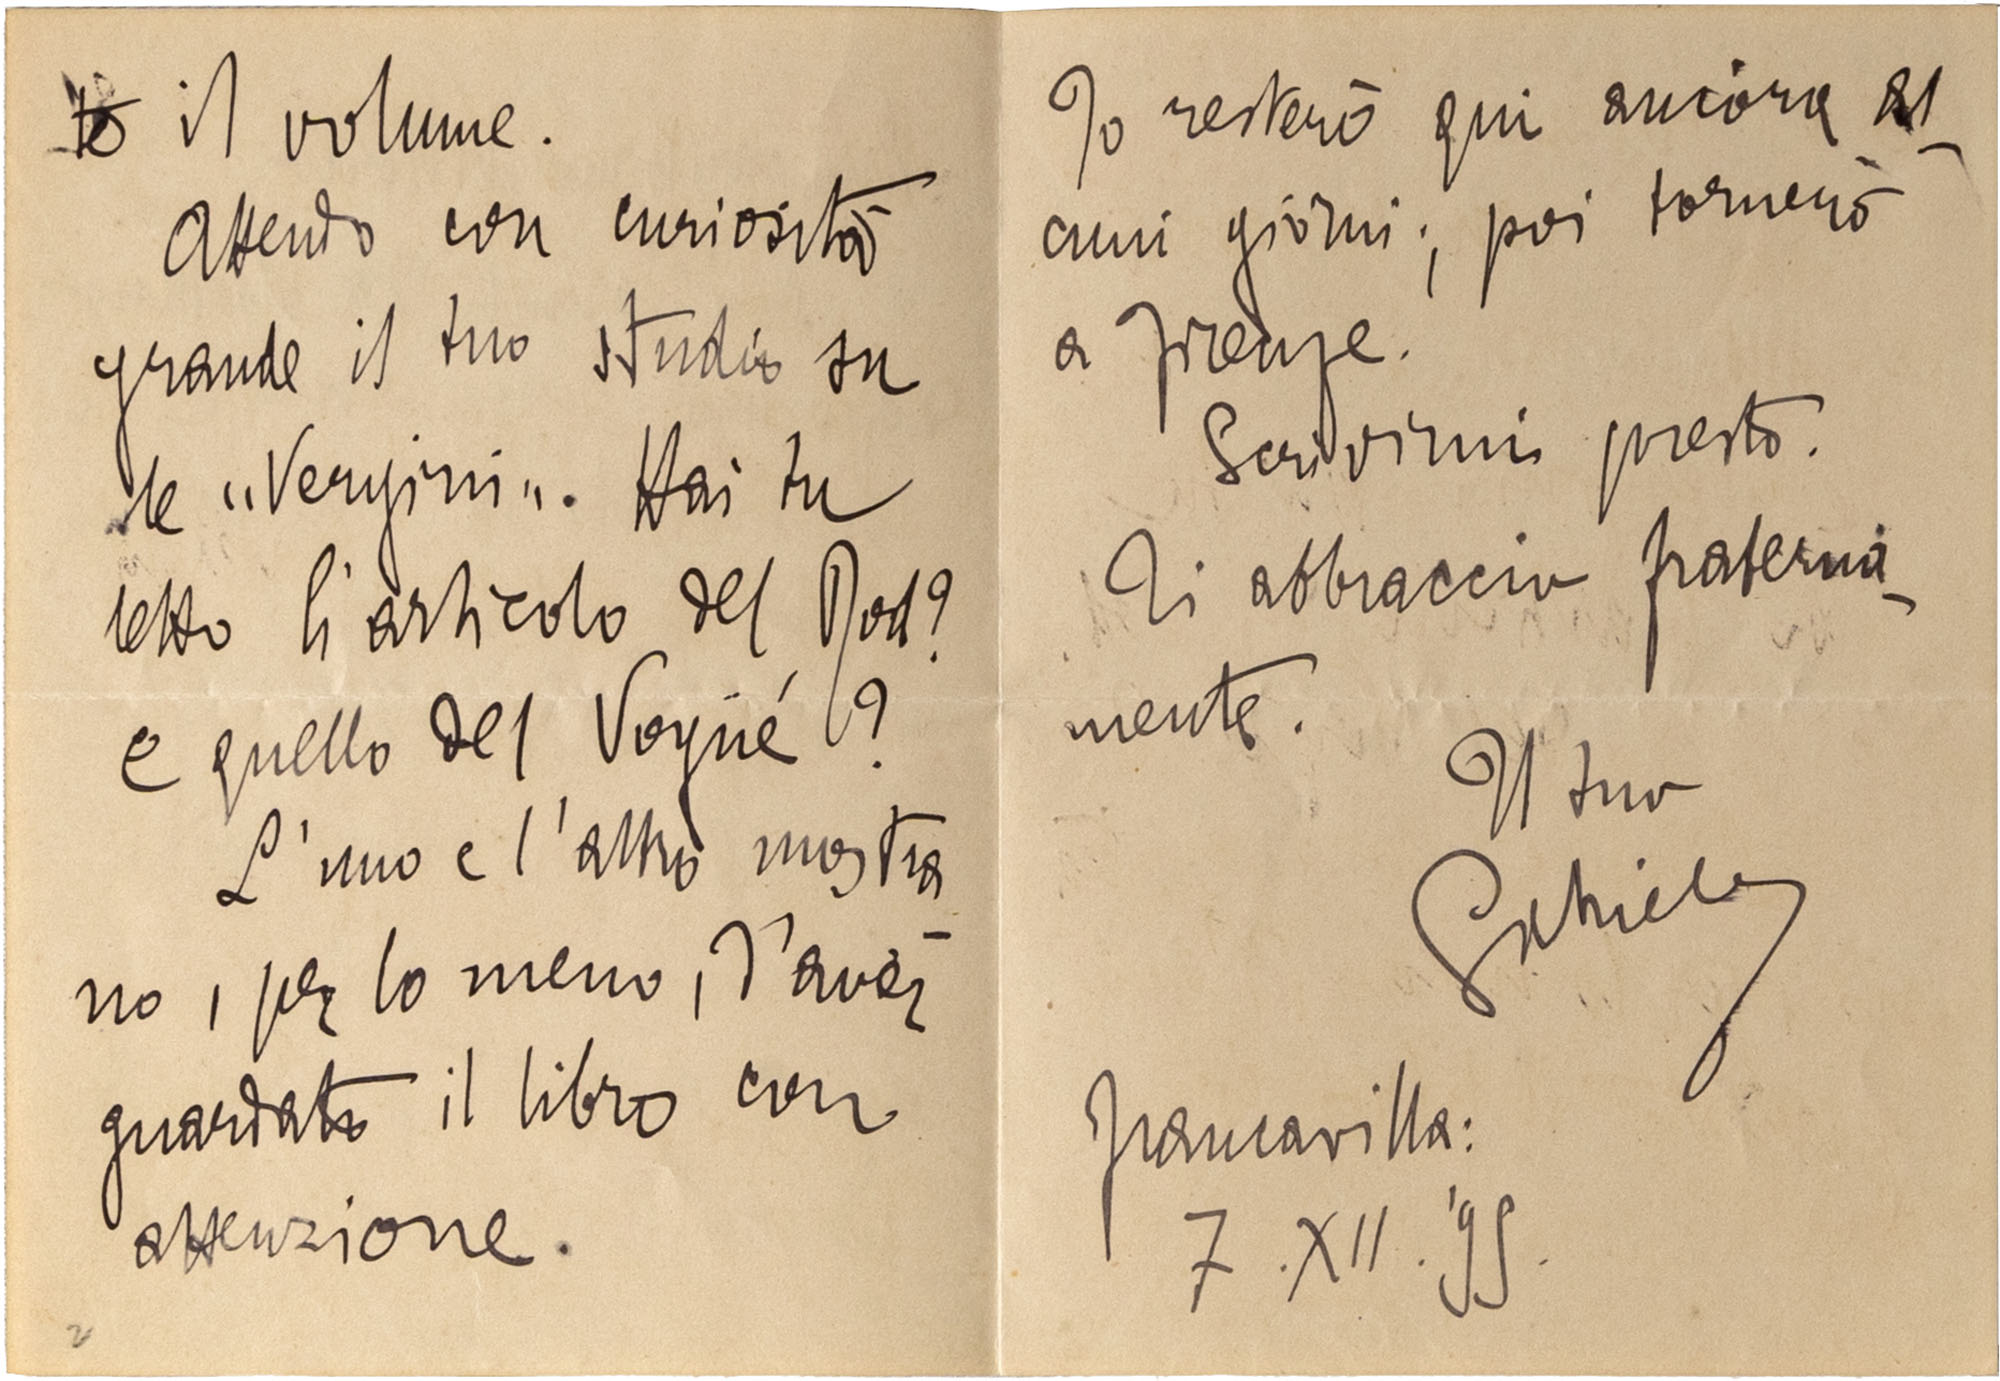 to il volume.
Attendo con curiosità
grande il tuo studio su
le "Vergini". Hai tu
letto l'articolo del Rod?
e quello del Vogüé?
L'uno e l'altro mostra
no, per lo meno, d'aver
guardato il libro con
attenzione.
2
Io resterò qui ancóra al-
cuni giórni; poi tornerò
a Firenze.
Scrivimi presto.
Ti abbraccio fraterna-
mente.
Il tuo
Gabriele
Francavilla:
7. XII. '95.